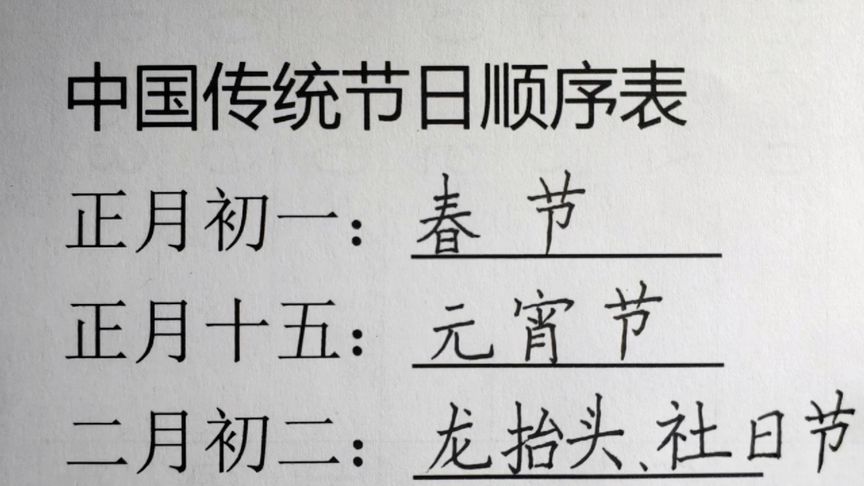 中国传统节日顺序表
正月初一：春节
正月十五：元宵节
二月初二：龙抬头、社日节